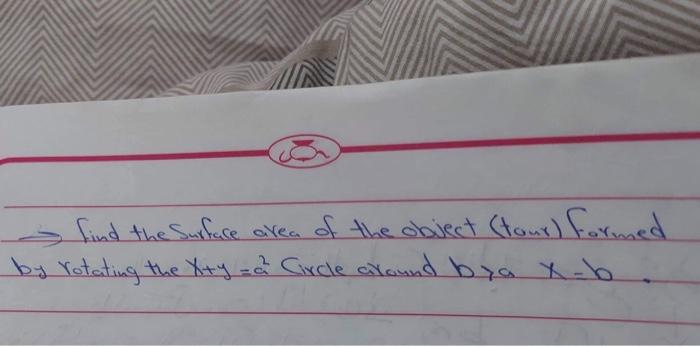 → find the Surface area of the object (tour) formed
by rotating the X+y = a² Circle around b>a X=b .